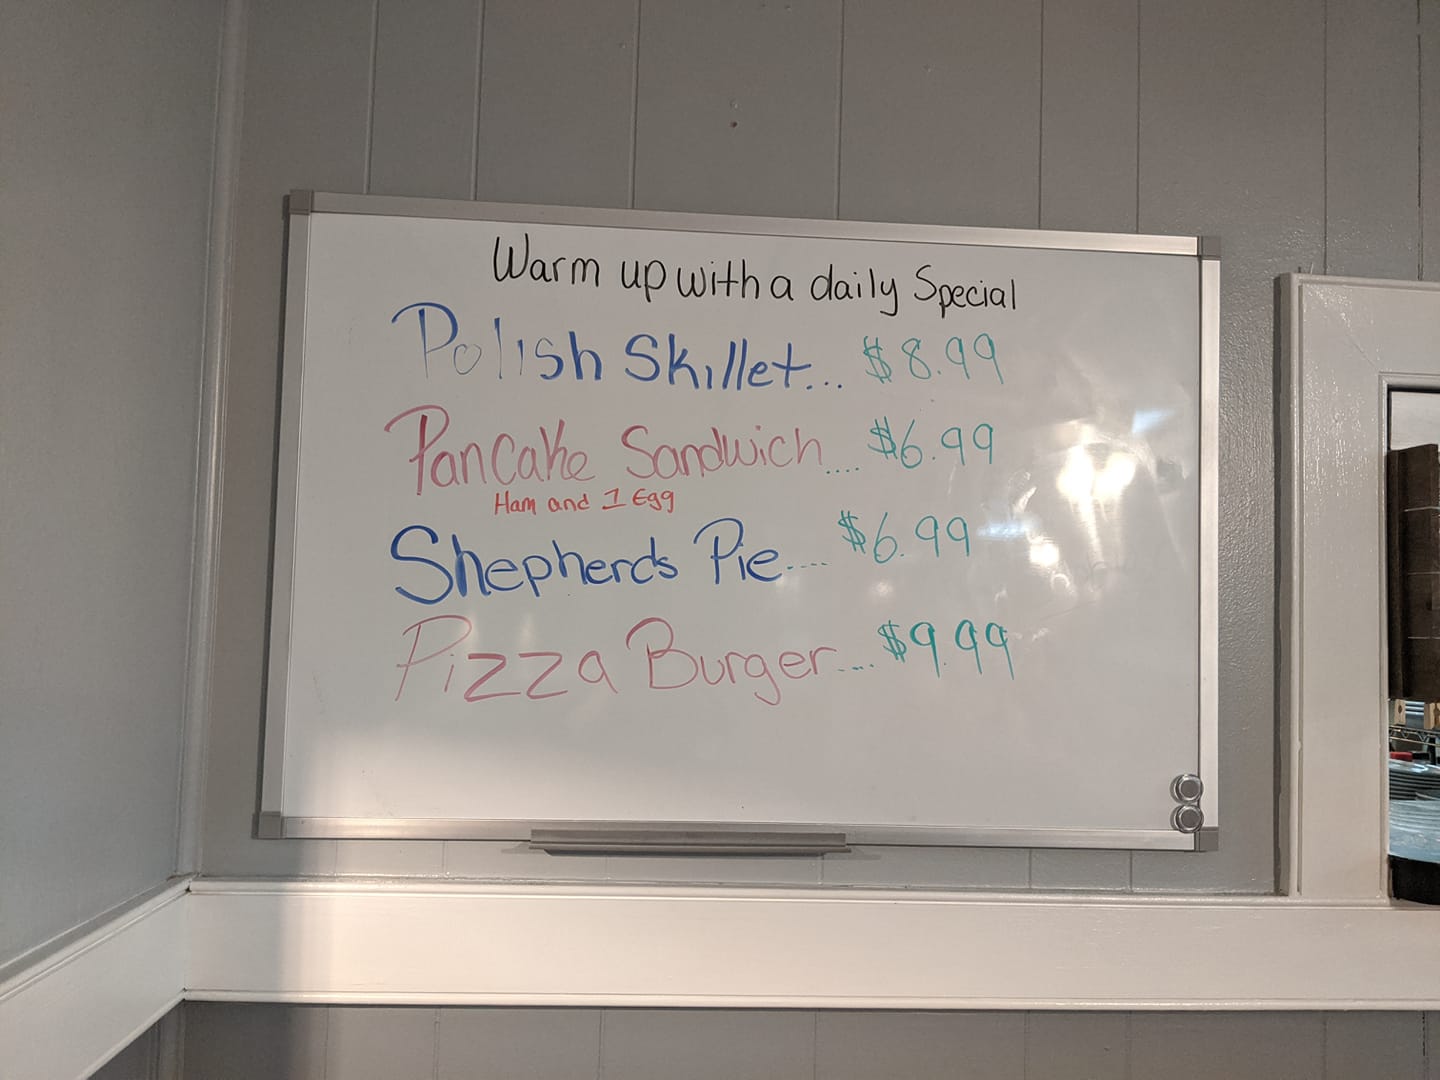 Warm up with a daily Special
Polish Skillet... $8.99
Pancake Sandwich.... $6.99
Ham and 1 Egg
Shepherds Pie.... $6.99
Pizza Burger.... $9.99